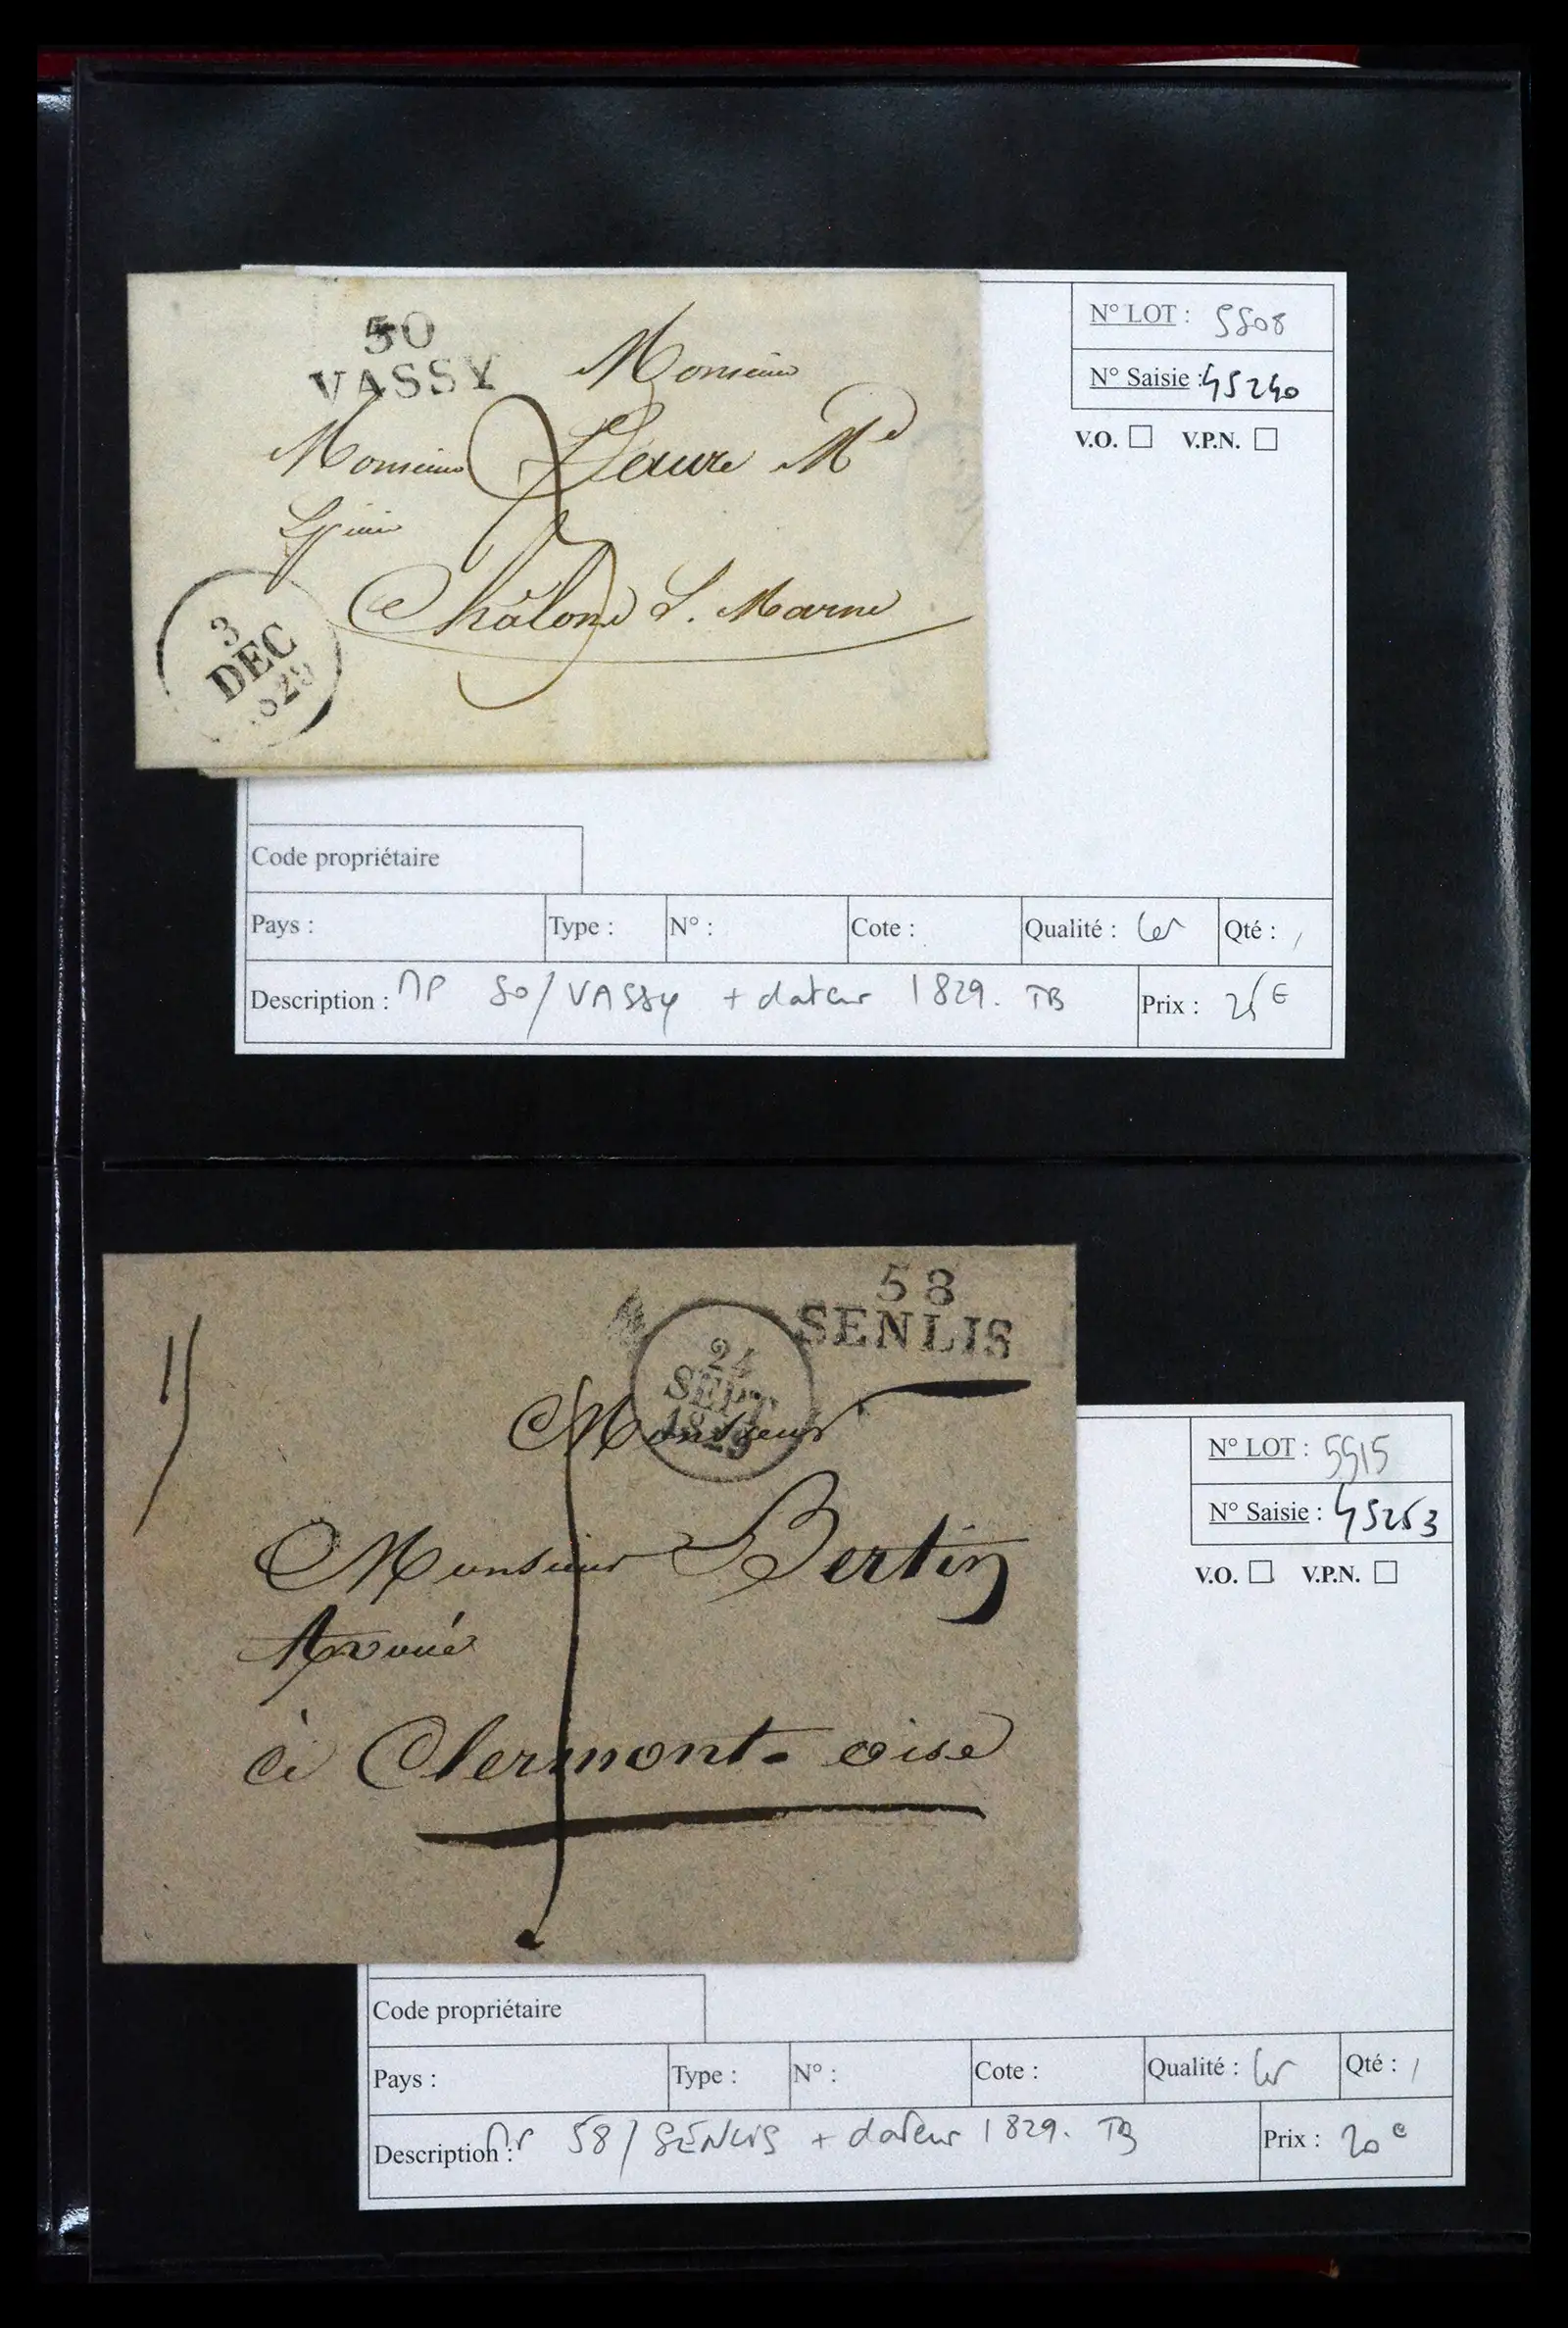 50
VASSY
Monsieur
Monsieur Lieure Md
Epicier
Châlons S. Marne
3
DEC
1829
N° LOT : 5508
N° Saisie : 45240
V.O. V.P.N.
Code propriétaire
Pays : Type : N° : Cote : Qualité : Ler Qté : 1
Description : MP 50/VASSY + dateur 1829. TB Prix : 25€
58
SENLIS
24
SEPT
1829
Monsieur
Monsieur Bertin
Avoué
à Clermont - oise
N° LOT : 5515
N° Saisie : 45253
V.O. V.P.N.
Code propriétaire
Pays : Type : N° : Cote : Qualité : Ler Qté : 1
Description : MP 58/SENLIS + dateur 1829. TB Prix : 20€